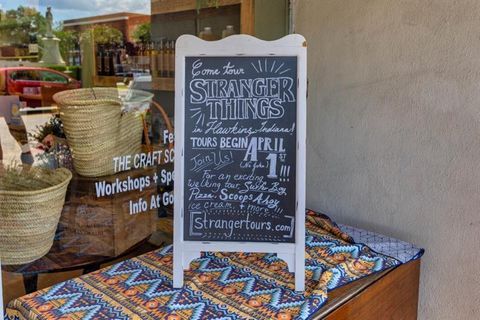 Come tour
STRANGER
THINGS
in Hawkins, Indiana!
TOURS BEGIN
APRIL
1st!!!
(No joke)
Join Us!
For an exciting
walking tour, Surfer Boy
Pizza, Scoops Ahoy
ice cream, & more
[Strangertours.com]
THE CRAFT SC
Workshops + Sp
Info At Go
Fe